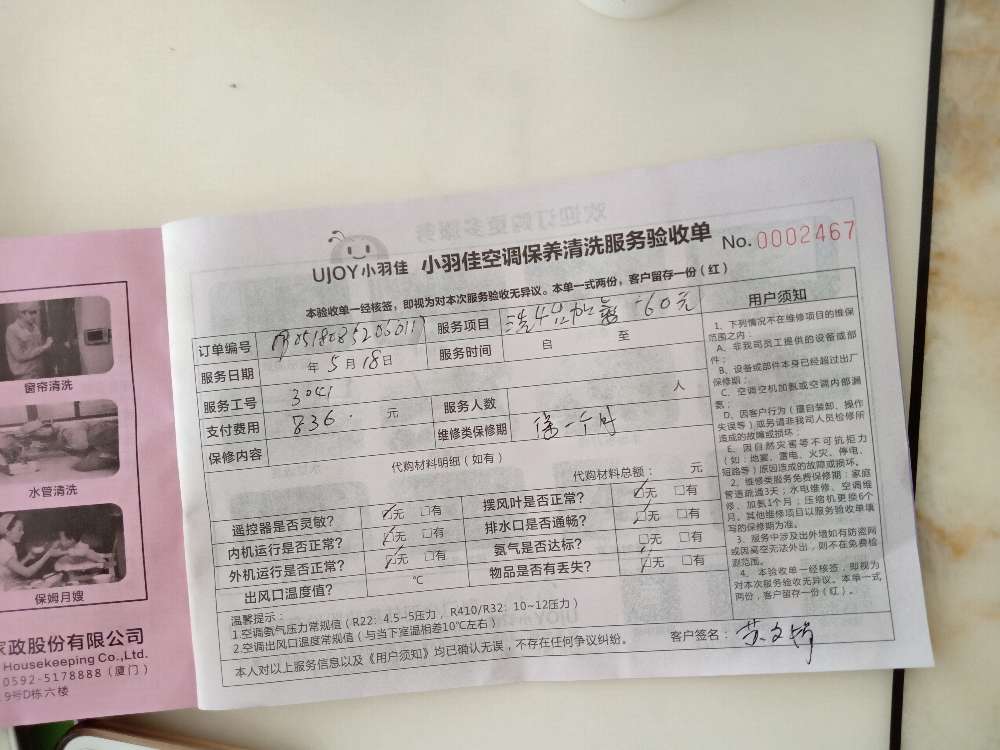 窗帘清洗
水管清洗
保姆月嫂
家政股份有限公司
Housekeeping Co.,Ltd.
0592-5178888（厦门）
9号D栋六楼
UJOY小羽佳 小羽佳空调保养清洗服务验收单 No.0002467
本验收单一经核签，即视为对本次服务验收无异议。本单一式两份，客户留存一份（红）
订单编号
服务项目
服务日期 年 5 月 18 日 服务时间 自 至
服务工号 3041 服务人数 人
支付费用 836 元 维修类保修期 保一个月
保修内容
代购材料明细（如有）
代购材料总额： 元
遥控器是否灵敏？ ☑无 □有 摆风叶是否正常？ ☑无 □有
内机运行是否正常？ ☑无 □有 排水口是否通畅？ ☑无 □有
外机运行是否正常？ ☑无 □有 氨气是否达标？ □无 □有
出风口温度值？ ℃ 物品是否有丢失？ ☑无 □有
温馨提示：
1.空调氨气压力常规值（R22：4.5~5压力，R410/R32：10~12压力）
2.空调出风口温度常规值（与当下室温相差10℃左右）
本人对以上服务信息以及《用户须知》均已确认无误，不存在任何争议纠纷。 客户签名：
用户须知
1、下列情况不在维修项目的维保
范围之内：
A、非我司员工提供的设备或部
件；
B、设备或部件本身已经超过出厂
保修期；
C、空调空机加氨或空调内部漏
氨；
D、因客户行为（擅自装卸、操作
失误等）或另请非我司人员检修所
造成的故障或损坏；
E、因自然灾害等不可抗拒力
（如：地震、雷电、火灾、停电、
短路等）原因造成的故障或损坏。
2、维修类服务免费保修期：家庭
管道疏通3天；水电维修、空调维
修、加氨1个月；压缩机更换6个
月。其他维修项目以服务验收单填
写的保修期为准。
3、服务中涉及出外墙如有防盗网
或因高空无法外出，则不在免费检
测范围。
4、本验收单一经核签，即视为
对本次服务验收无异议。本单一式
两份，客户留存一份（红）。